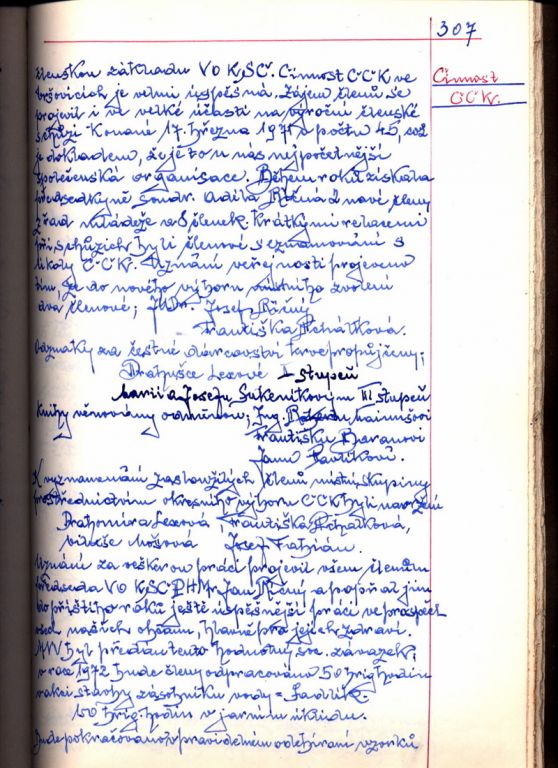 307
Činnost
ČČK.
členskou základnu VO KSČ. Činnost ČČK ve
je velmi úspěšná. Zájem členů se
projevil i ve velké účasti na výroční členské
schůzi konané 17. března 1971 o počtu 45, což
je dokladem, že je to u nás nejpočetnější
společenská organisace. Během roku získala
předsedkyně soudr. 2 nové členy
z řad mládeže a 8 členek. Krátkými relacemi
při schůzích byli členové seznamováni s
úkoly ČČK. Uznání veřejnosti projeveno
tím, že do nového výboru místního zvoleni
dva členové; JUDr. Josef
Františka
Odznaky za čestné dárcovství krve propůjčeny;
Drahušce Lexové I stupeň
Marii a Josefu Sukeníkovým III stupeň
Knihy věnovány odměnou; Ing.
Františku Beranovi
Janu
K vyznamenání zasloužilých členů místní skupiny
prostřednictvím okresního výboru ČČK byli navrženi
Drahomíra Lexová, Františka
Josef
Uznání za veškerou práci projevil všem členům
předseda VO KSČ PHMr Jan a popřál jim
do příštího roku ještě úspěšnější práci ve prospěch
všech našich občanů, hlavně pro jejich zdraví.
MNV byl předán tento hodnotný soc. závazek;
v roce 1972 bude členy odpracováno 50 brig. hodin
v akci stavby zásobníku vody =
50 brig. hodin v jarním úklidu.
Bude pokračováno v pravidelném odebírání vzorků